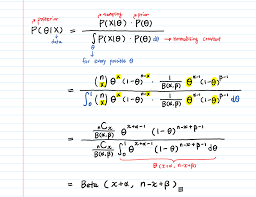 posterior
sampling prior
P(θ|X) = P(X|θ) · P(θ) / ∫θ P(X|θ) · P(θ) dθ → normalizing constant
data
for every possible θ
= (n x) θ^x (1-θ)^n-x · 1/B(α,β) θ^α-1 (1-θ)^β-1 / ∫₀¹ (n x) θ^x (1-θ)^n-x · 1/B(α,β) θ^α-1 (1-θ)^β-1 dθ
= nCx/B(α,β) θ^x+α-1 (1-θ)^n-x+β-1 / nCx/B(α,β) ∫₀¹ θ^x+α-1 (1-θ)^n-x+β-1 dθ
B(x+α, n-x+β)
= Beta (x+α, n-x+β)